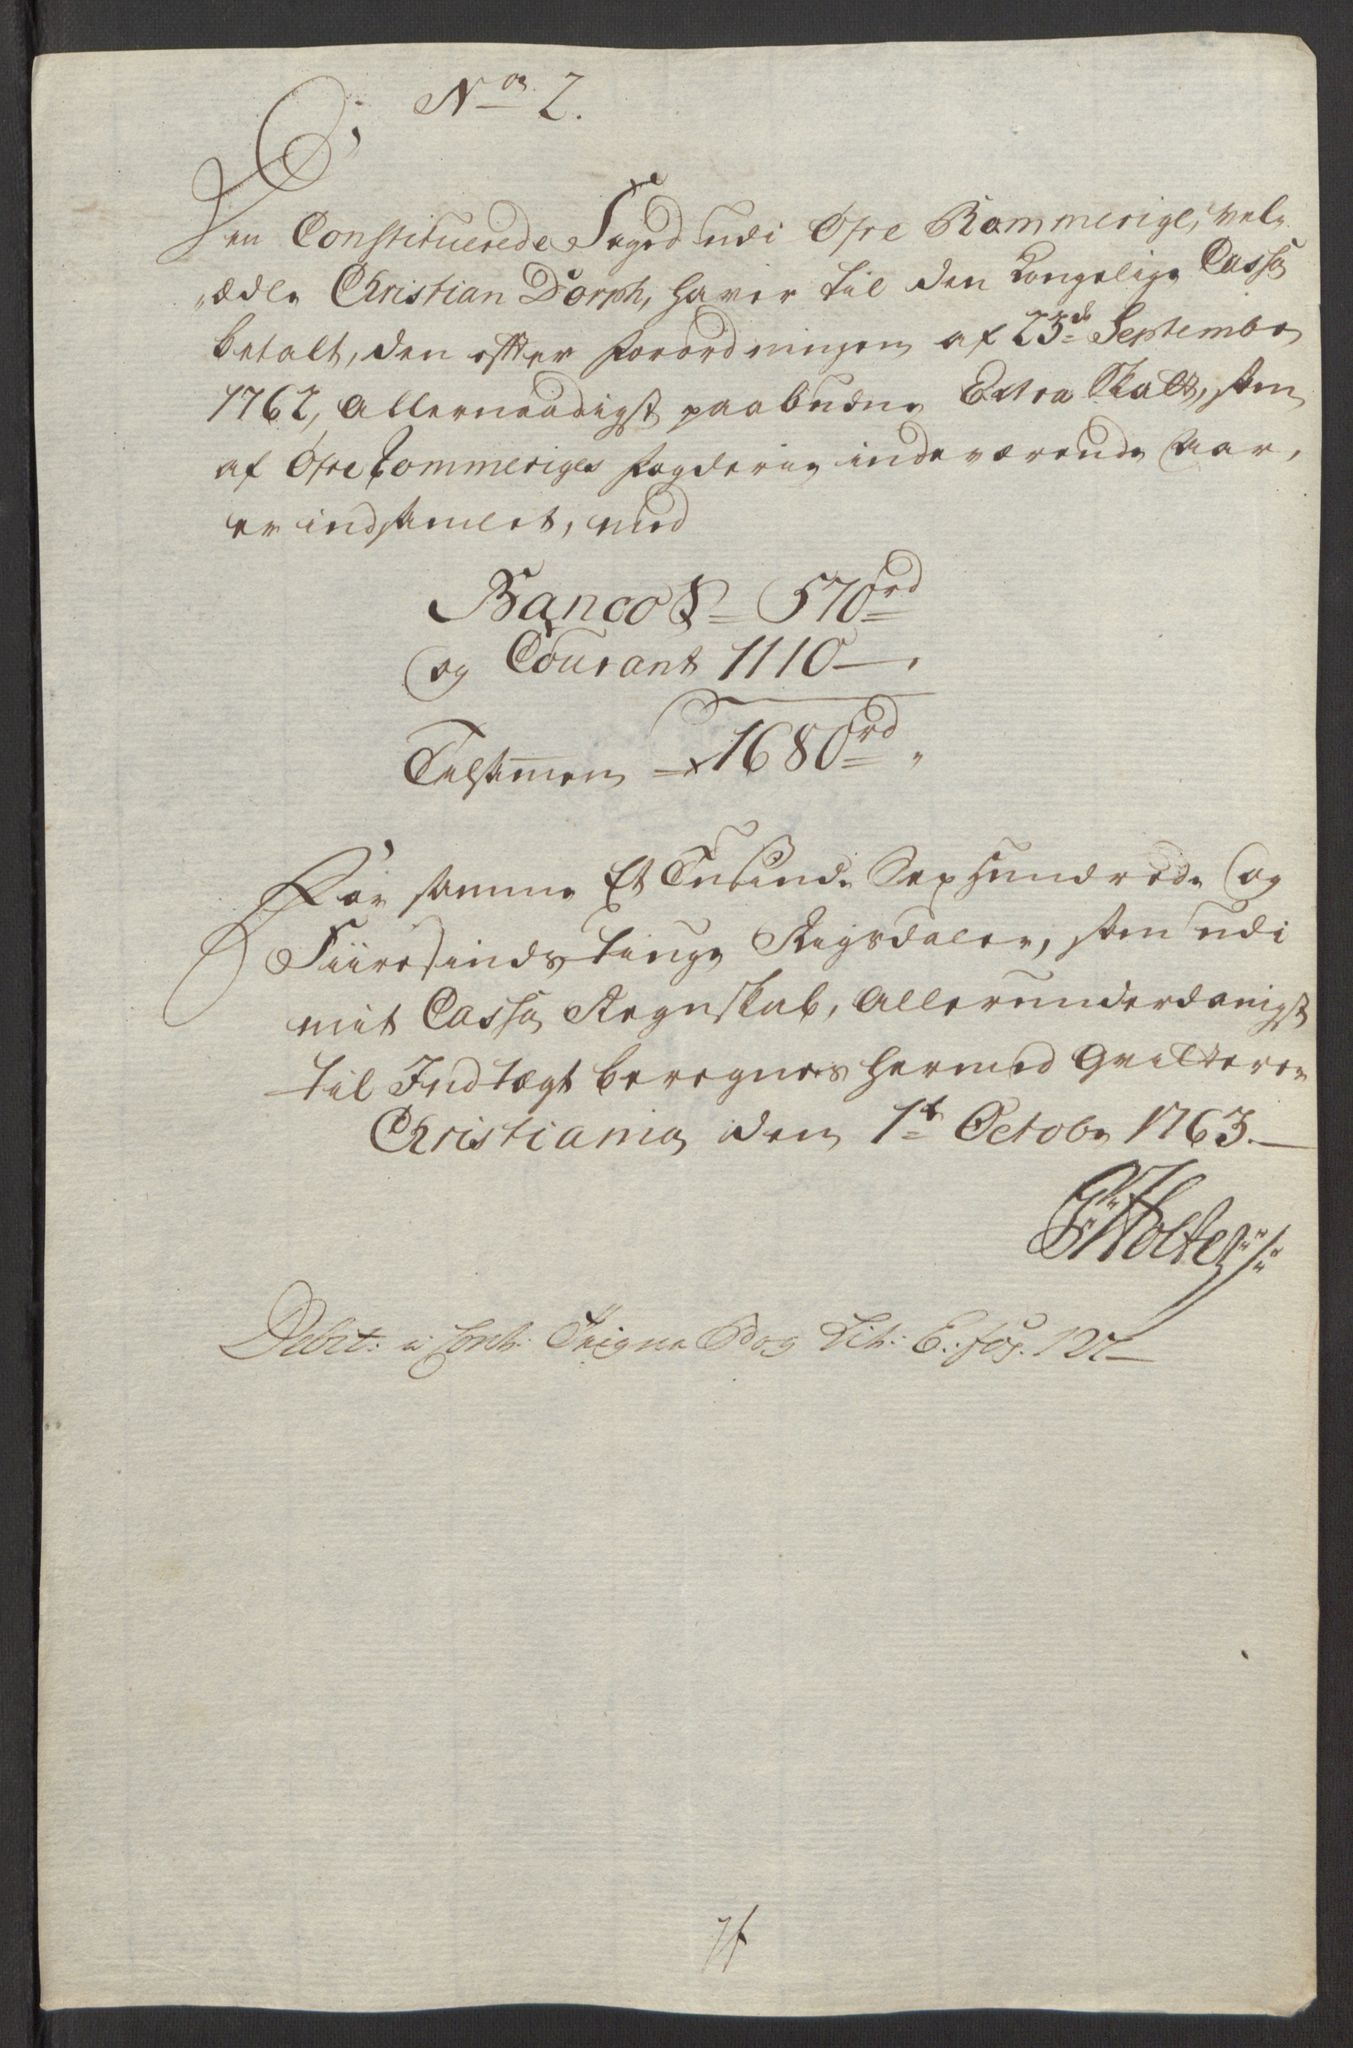 No 2.
Den Constituerede Foged udi Øfre Rommerige, vel-
ædle Christian Dorph, haver til den Kongelige Cassa
betalt, den efter Forordningen af 23de Septembr
1762, Allernaadigst paabudne Extra Skatt, som
af Øfre Rommeriges Fogderie indeværende Aar,
er indsamlet, med
Banco S 570rd
og Courant 1110 —
Tilsammen — 1680rd
For samme Et Tusinde Sex Hundrede og
Fiiresindstiuge Rigsdaler, som udi
mit Cassa Regnskab, Allerunderdanigst
til Indtægt beregnes hermed Qvitteres
Christiania den 1t Octobr 1763. —
Holter
Debit: i Bog Lit: E. fol. 127 —